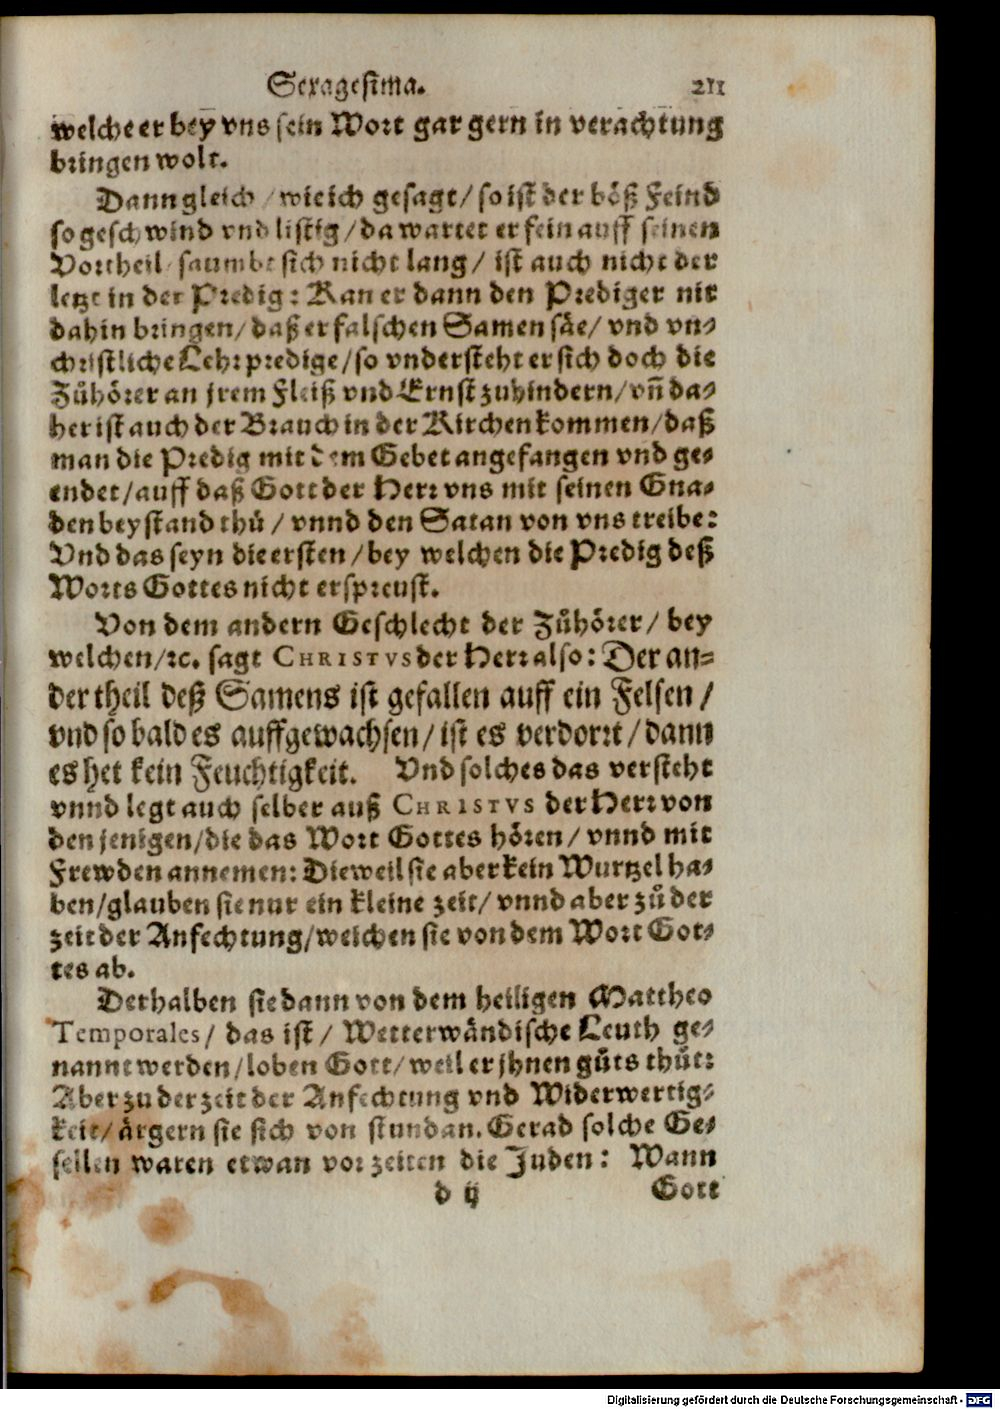 Sexagesima. 211
welche er bey vns sein Wort gar gern in verachtung
bringen wolt.
Dann gleich / wie ich gesagt / so ist der böß Feind
so geschwind vnd listig / da wartet er fein auff seinen
Vortheil / saumbt sich nicht lang / ist auch nicht der
letzt in der Predig: Kan er dann den Prediger nit
dahin bringen / daß er falschen Samen säe / vnd vn-
christliche Lehr predige / so vndersteht er sich doch die
Zůhörer an jrem Fleiß vnd Ernst zuhindern / vn̄ da-
her ist auch der Brauch in der Kirchen kommen / daß
man die Predig mit dem Gebet angefangen vnd ge-
endet / auff daß Gott der Herr vns mit seinen Gna-
den beystand thů / vnnd den Satan von vns treibe:
Vnd das seyn die ersten / bey welchen die Predig deß
Worts Gottes nicht erspreust.
Von dem andern Geschlecht der Zůhörer / bey
welchen / ꝛc. sagt CHRISTVS der Herr also: Der an-
der theil deß Samens ist gefallen auff ein Felsen /
vnd so bald es auffgewachsen / ist es verdorrt / dann
es het kein Feuchtigkeit. Vnd solches das versteht
vnnd legt auch selber auß CHRISTVS der Herr von
den jenigen / die das Wort Gottes hören / vnnd mit
Frewden annemen: Dieweil sie aber kein Wurtzel ha-
ben / glauben sie nur ein kleine zeit / vnnd aber zů der
zeit der Anfechtung / weichen sie von dem Wort Got-
tes ab.
Derhalben sie dann von dem heiligen Mattheo
Temporales / das ist / Wetterwändische Leuth ge-
nannt werden / loben Gott / weil er jhnen gůts thůt:
Aber zu der zeit der Anfechtung vnd Widerwertig-
keit / ärgern sie sich von stundan. Gerad solche Ge-
sellen waren etwan vor zeiten die Juden: Wann
d ij Gott
Digitalisierung gefördert durch die Deutsche Forschungsgemeinschaft - DFG